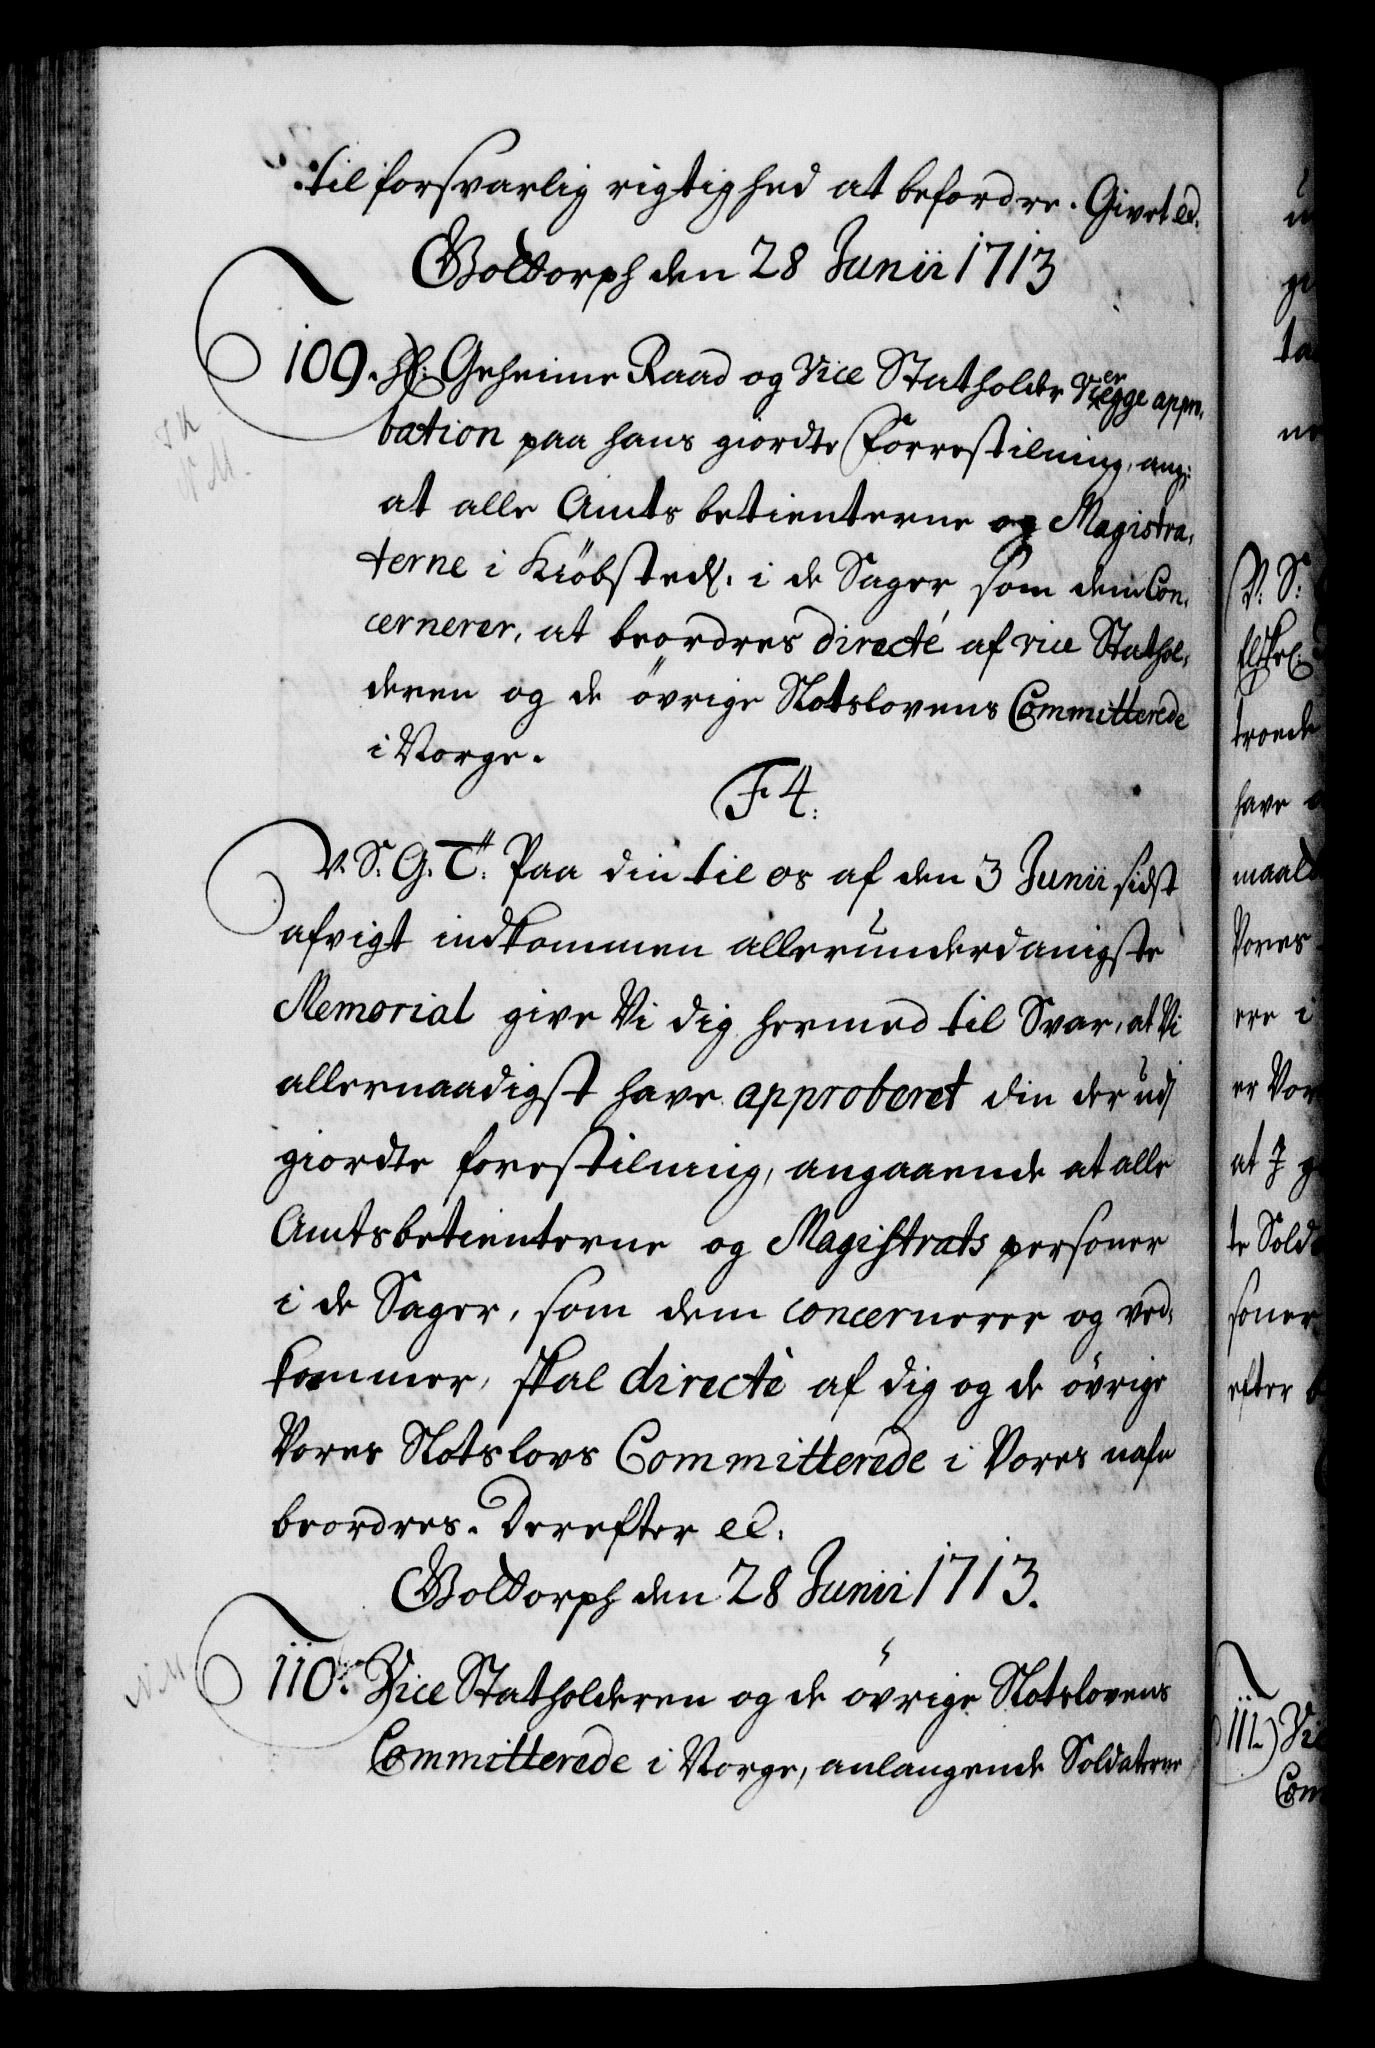 til forsvarlig rigtighed at befordre. Givet ec.
Gottorph den 28 Junii 1713
109. Hr: Geheime Raad og Vice Statholder appro-
bation paa hans giordte Forrestilning, ang:
at alle Amts betienterne og Magistra-
terne i Kiöbsteder. i de Sager som dem Con-
cernerer, at beordres directé af vice Stathol-
deren og de övrige Slotslovens Committerede
i Norge.
F. 4.
V. S. G. T. Paa din til os af den 3 Junii sidst
afvigt indkommen allerunderdanigste
Memorial give Vi dig hermed til Svar, at Vi
allernaadigst have approberet din der udj
giordte forestilning, angaaende at alle
Amtsbetienterne og Magistrats personer
i de Sager, som dem concernerer og ved-
kommer, skal directè af dig og de övrige
Vores Slotslovs Committerede i Vores nafn
beordres. Derefter ec.
Gottorph den 28 Junii 1713.
110. Vice Statholderen og de övrige Slotslovens
Committerede i Norge, anlangende Soldaterne
N M.
N M
V. S.
troede
have
maal
Vores
ere i
er Vor
at J
te Sold
soner
efter
111.) Vi
Com